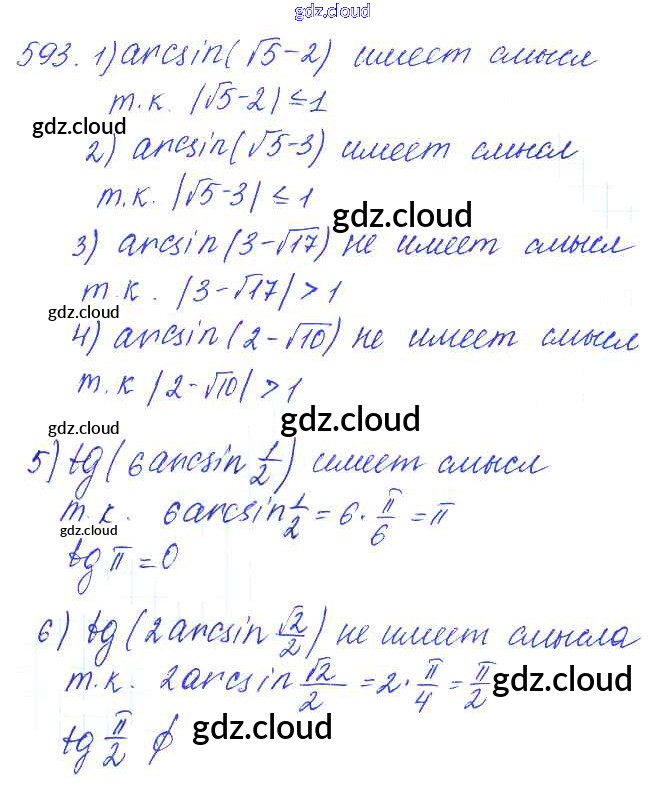 gdz.cloud
593. 1) arcsin(√5-2) имеет смысл
т.к. |√5-2| ≤ 1
gdz.cloud
2) arcsin(√5-3) имеет смысл
т.к. |√5-3| ≤ 1
gdz.cloud
3) arcsin(3-√17) не имеет смысл
т.к. |3-√17| > 1
gdz.cloud
4) arcsin(2-√10) не имеет смысл
т.к |2-√10| > 1
gdz.cloud
5) tg(6 arcsin 1/2) имеет смысл
т.к. 6 arcsin 1/2 = 6 · π/6 = π
gdz.cloud
tg π = 0
6) tg(2 arcsin √2/2) не имеет смысла
т.к. 2 arcsin √2/2 = 2 · π/4 = π/2
gdz.cloud
tg π/2 ∅
gdz.cloud